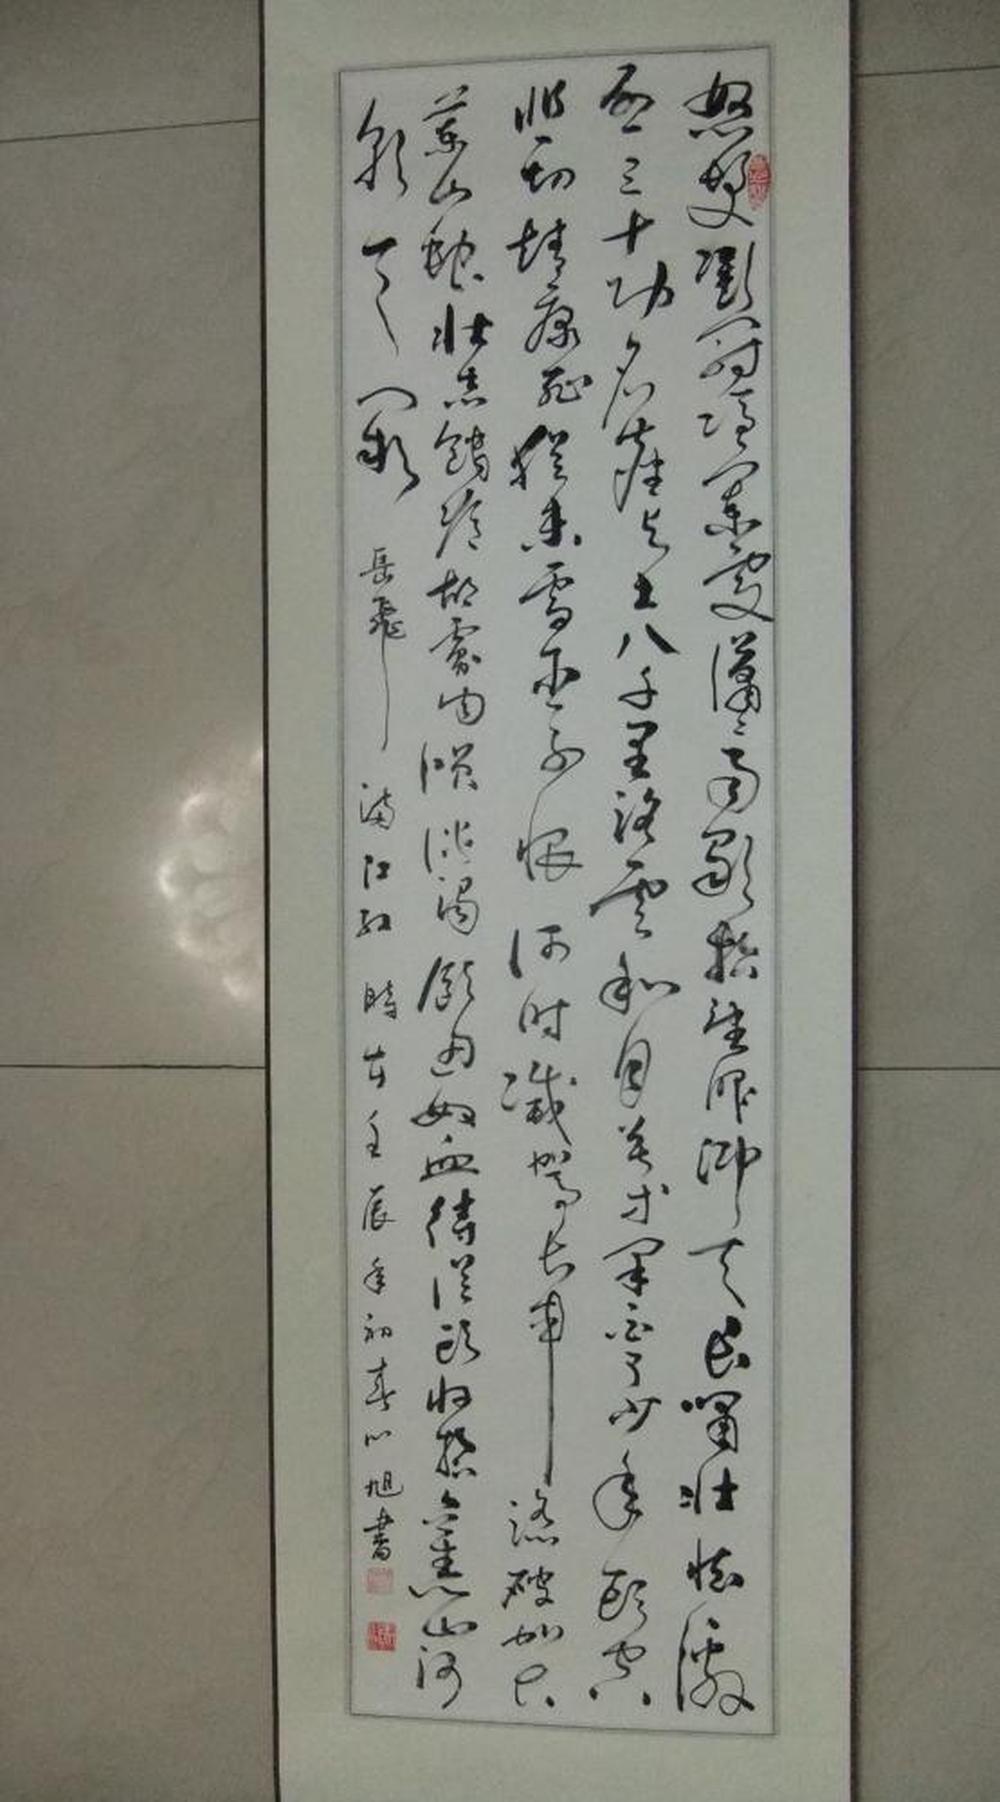 怒髮衝冠憑闌處瀟瀟雨歇抬望眼仰天長嘯壯懷激
烈三十功名塵與土八千里路雲和月莫等閒白了少年頭空
悲切靖康恥猶未雪臣子恨何時滅駕長車踏破賀
蘭山缺壯志飢餐胡虜肉笑談渴飲匈奴血待從頭收拾舊山河
朝天闕 岳飛 滿江紅 時在壬辰年初春 旭書